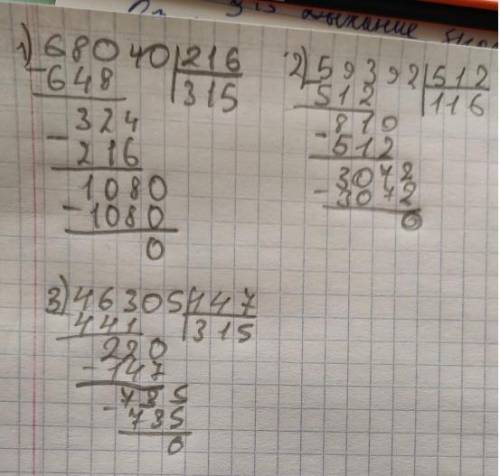 выкание
1) 68040 | 216
- 648 | 315
324
- 216
1080
- 1080
0
2) 59392 | 512
- 512 | 116
810
- 512
3072
- 3072
0
3) 46305 | 147
441 | 315
220
- 147
735
- 735
0